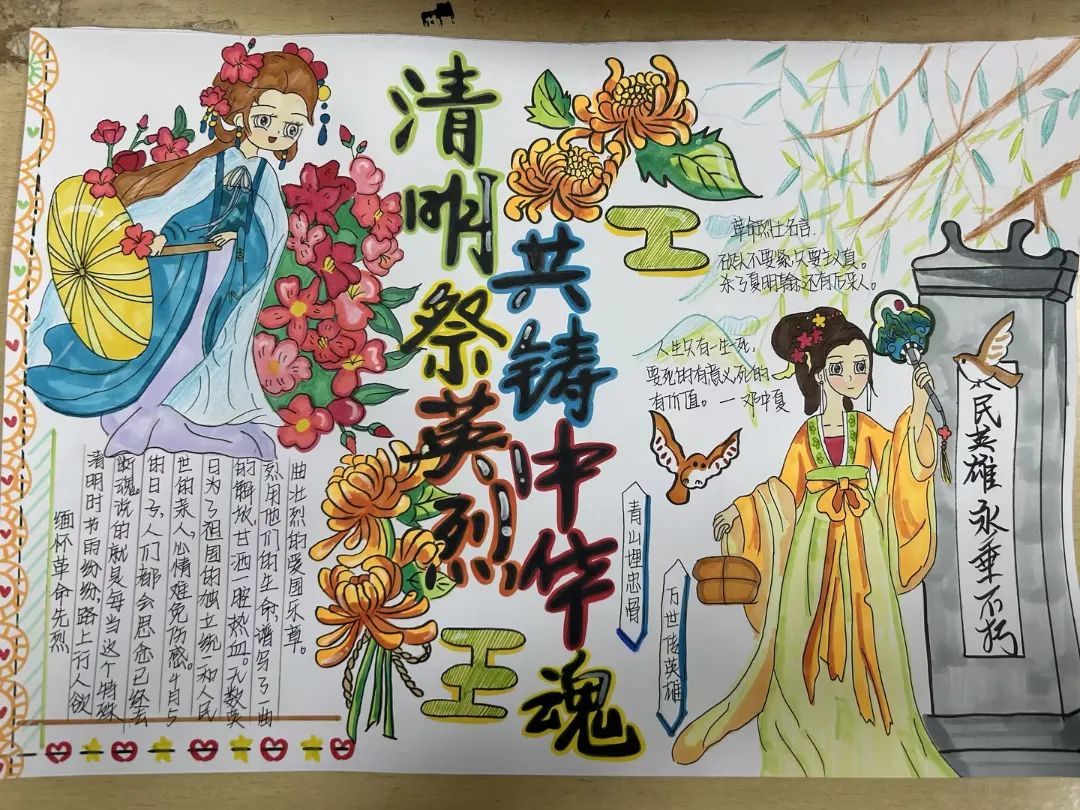 清明祭英烈
共铸中华魂
革命烈士名言.
砍头不要紧,只要主义真。
杀了夏明翰,还有后来人。
人生只有一生死,
要死的有意义,死的
有价值。—邓中夏
缅怀革命先烈
清明时节雨纷纷路上行人欲
断魂说的就是每当这个特殊
的日子,人们都会思念已经去
世的亲人,心情难免伤感。4月5
日为了祖国的独立统一和人民
的解放,甘洒一腔热血。无数英
烈用他们的生命谱写了一曲
曲壮烈的爱国乐章。
青山埋忠骨
万世传英雄
民英雄永垂不朽